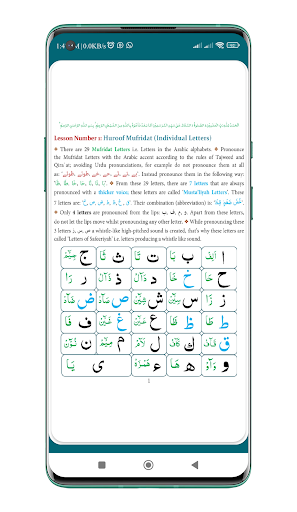 Lesson Number 1: Huroof Mufridat (Individual Letters)
❖ There are 29 Mufridat Letters i.e. Letters in the Arabic alphabets. ❖ Pronounce
the Mufridat Letters with the Arabic accent according to the rules of Tajweed and
Qira'at; avoiding Urdu pronunciations, for example do not pronounce them at all
as: Instead pronounce them in the following way:
❖ From these 29 letters, there are 7 letters that are always
pronounced with a thicker voice; these letters are called 'Musta'liyah Letters'. These
7 letters are: Their combination (abbreviation) is:
❖ Only 4 letters are pronounced from the lips: ب، ف، م، و. Apart from these letters,
do not let the lips move while pronouncing any other letter. ❖ While pronouncing these
3 letters ز، س، ص a whistle-like high-pitched sound is created, that's why these letters are
called 'Letters of Safeeriyah' i.e. letters producing a whistle like sound.
ا اَلِفْ ب بَا ت تَا ث ثَا ج جِيْمْ
ح حَا خ خَا د دَالْ ذ ذَالْ ر رَا
ز زَا س سِيْنْ ش شِيْنْ ص صَادْ ض ضَادْ
ط طَا ظ ظَا ع عَيْنْ غ غَيْنْ ف فَا
ق قَافْ ك كَافْ ل لَامْ م مِيْمْ ن نُوْنْ
و وَاوْ ه هَا ء هَمْزَهْ ی یَا
1